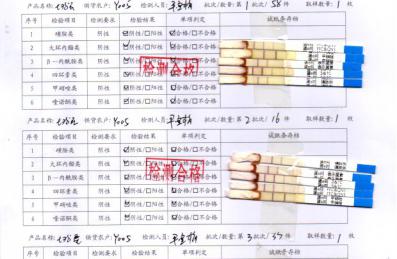 产品名称: 供货农户: Y005 检测人员: 批次/数量: 第1批次/58件 取样数量: 1 枚
序号 检验项目 检测要求 检验结果 单项判定 试纸条存档
1 磺胺类 阴性 ☑阴性/□阳性 ☑合格/□不合格
2 大环内酯类 阴性 ☑阴性/□阳性 ☑合格/□不合格
3 β-内酰胺类 阴性 ☑阴性/□阳性 ☑合格/□不合格
4 四环素类 阴性 ☑阴性/□阳性 ☑合格/□不合格
5 甲硝唑类 阴性 ☑阴性/□阳性 ☑合格/□不合格
6 喹诺酮类 阴性 ☑阴性/□阳性 ☑合格/□不合格
检测合格
产品名称: 供货农户: Y005 检测人员: 批次/数量: 第2批次/16件 取样数量: 1 枚
序号 检验项目 检测要求 检验结果 单项判定 试纸条存档
1 磺胺类 阴性 ☑阴性/□阳性 ☑合格/□不合格
2 大环内酯类 阴性 ☑阴性/□阳性 ☑合格/□不合格
3 β-内酰胺类 阴性 ☑阴性/□阳性 ☑合格/□不合格
4 四环素类 阴性 ☑阴性/□阳性 ☑合格/□不合格
5 甲硝唑类 阴性 ☑阴性/□阳性 ☑合格/□不合格
6 喹诺酮类 阴性 ☑阴性/□阳性 ☑合格/□不合格
检测合格
产品名称: 供货农户: Y005 检测人员: 批次/数量: 第3批次/37件 取样数量: 1 枚
序号 检验项目 检测要求 检验结果 单项判定 试纸条存档